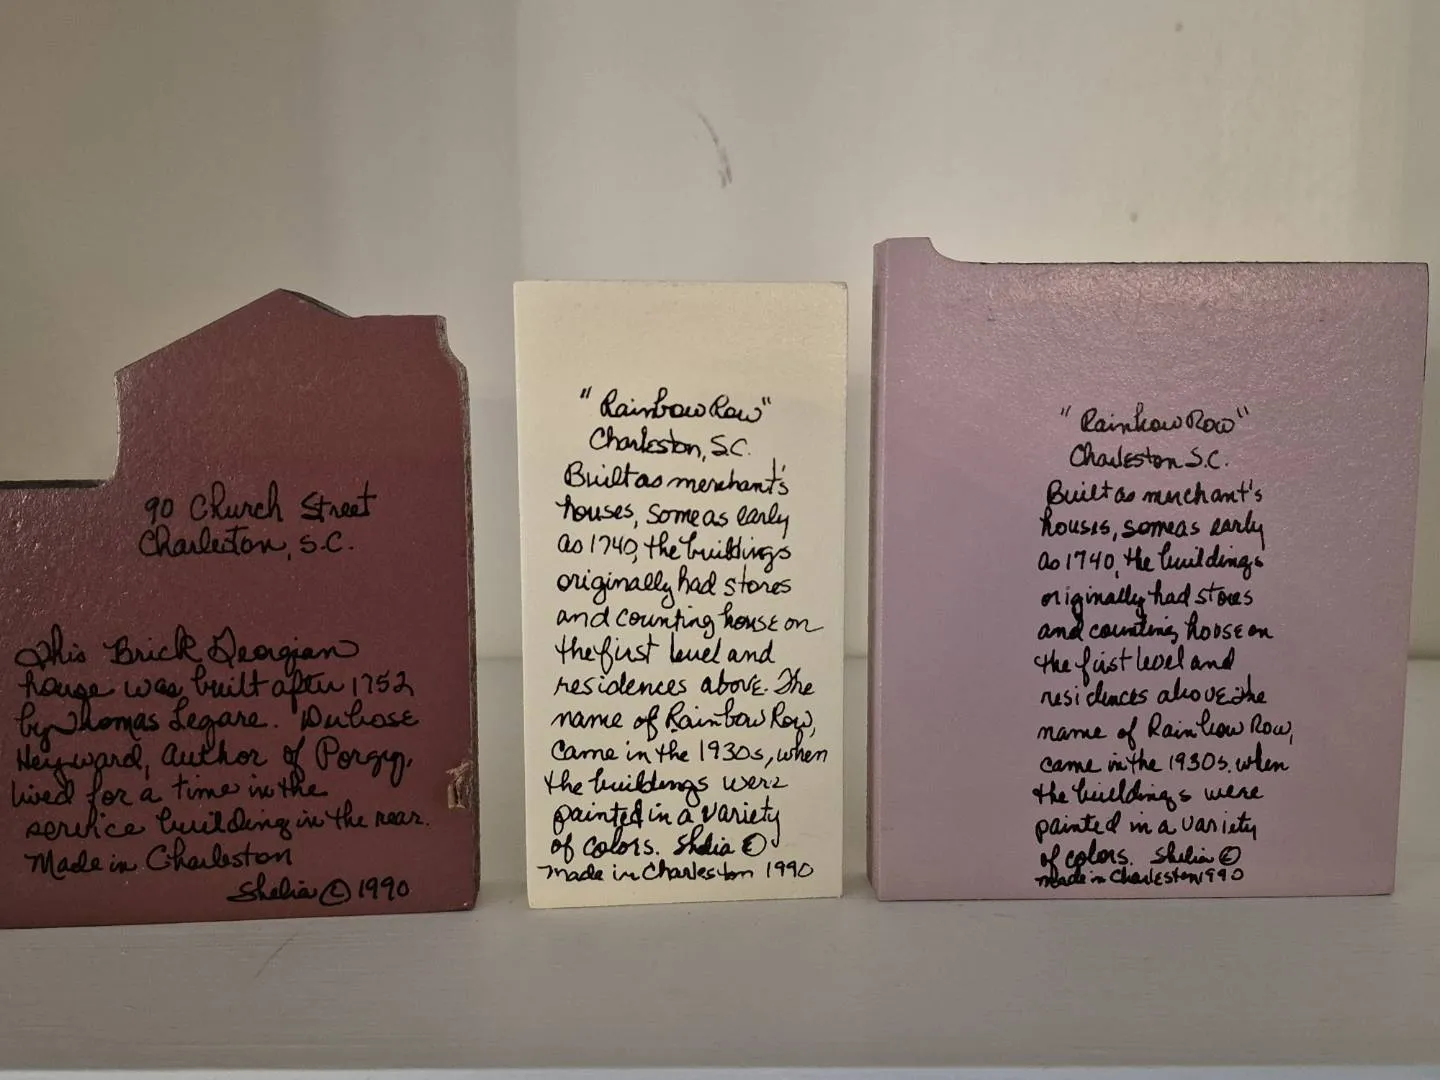 90 Church Street
Charleston, S.C.
This Brick Georgian
house was built after 1752
by Thomas Legare. DuBose
Heyward, author of Porgy,
lived for a time in the
service building in the rear.
Made in Charleston
Shelia © 1990
"Rainbow Row"
Charleston, S.C.
Built as merchant's
houses, some as early
as 1740, the buildings
originally had stores
and counting house on
the first level and
residences above. The
name of Rainbow Row,
came in the 1930s, when
the buildings were
painted in a variety
of colors. Shelia ©
Made in Charleston 1990
"Rainbow Row"
Charleston S.C.
Built as merchant's
houses, some as early
as 1740, the buildings
originally had stores
and counting house on
the first level and
residences above. the
name of Rainbow Row,
came in the 1930s. when
the buildings were
painted in a variety
of colors. Shelia ©
Made in Charleston 1990